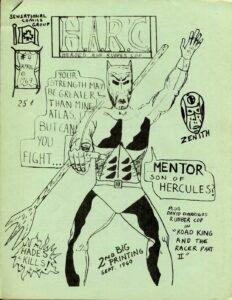 SENSATIONAL
COMICS
GROUP
H.A.R.C
HEROES AND RUBBER COP
25¢
YOUR
STRENGTH MAY
BE GREATER
THAN MINE
ATLAS,
BUT CAN
YOU
FIGHT...
ZENITH
MENTOR
SON OF
HERCULES!
PLUS
RUBBER COP
IN
"ROAD KING
AND THE
RACER PART
II"
HAND
MADE
KILLS!
2ND BIG
PRINTING
SEPT. 1969